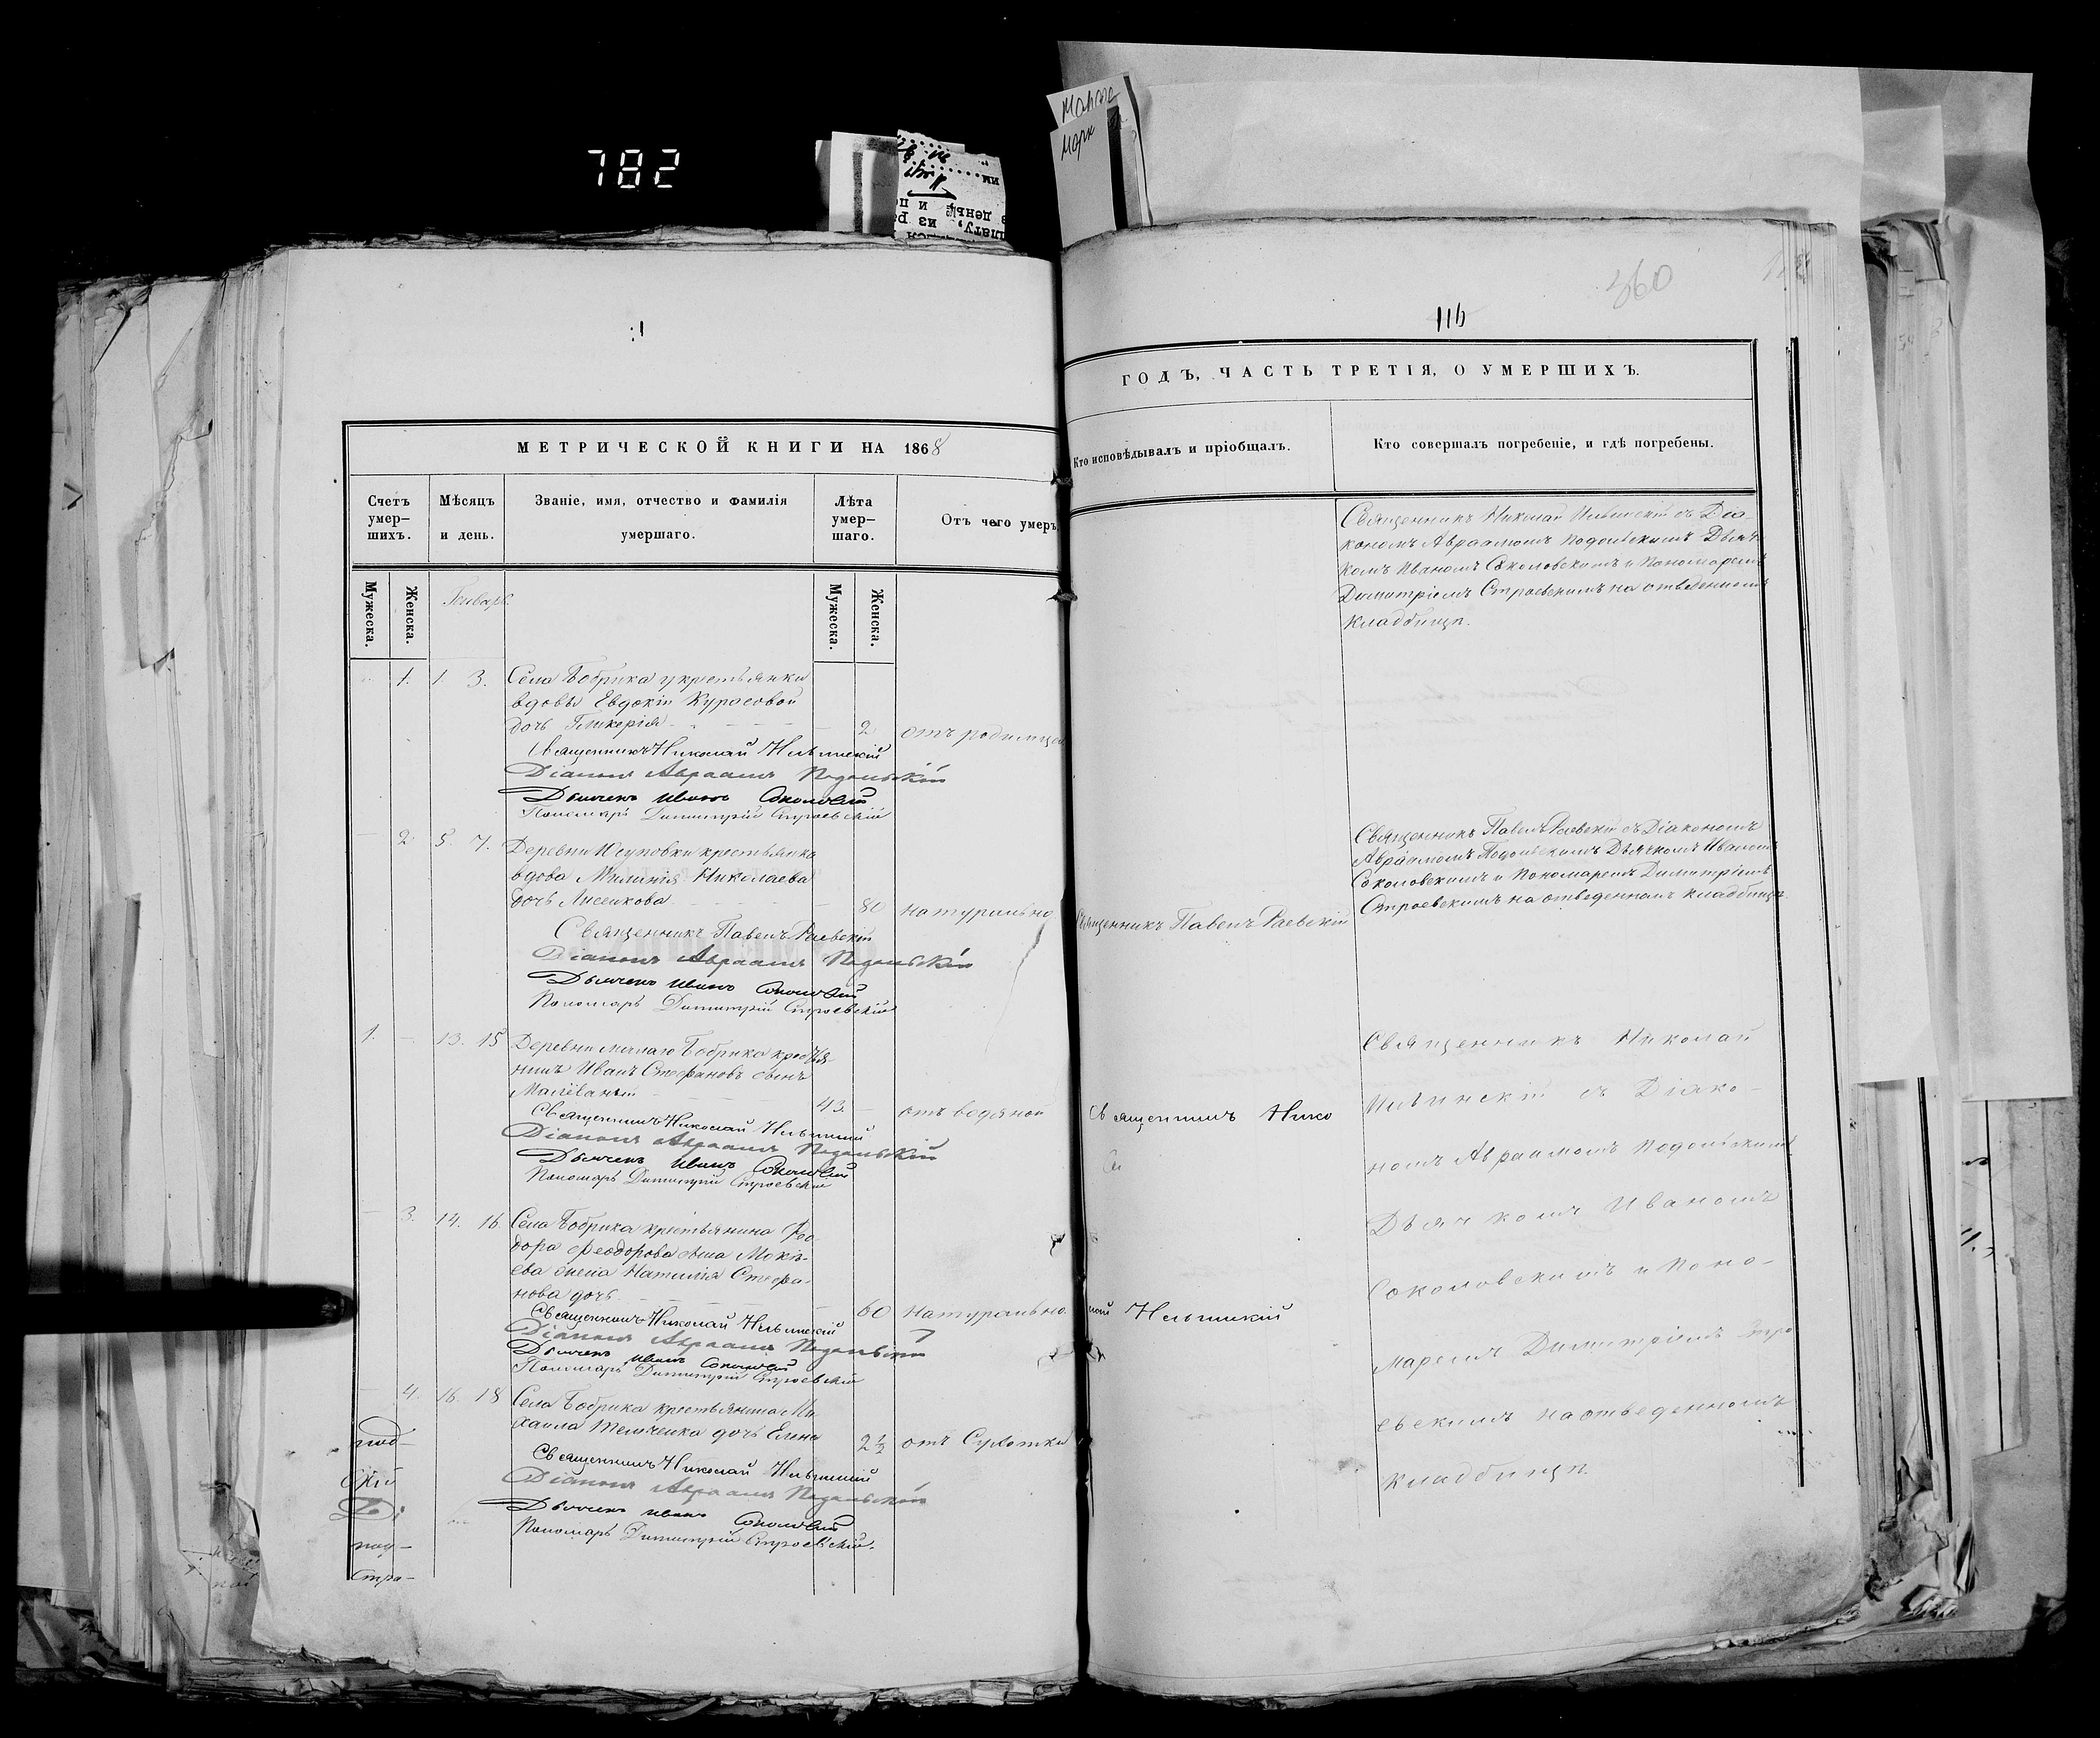 782
360
116
МЕТРИЧЕСКОЙ КНИГИ НА 1868
ГОДЪ, ЧАСТЬ ТРЕТІЯ, О УМЕРШИХЪ.
Счетъ умер–шихъ.
Мѣсяцъ и день.
Званіе, имя, отчество и фамилія умершаго.
Лѣта умер–шаго.
Отъ чего умеръ
Кто исповѣдывалъ и пріобщалъ.
Кто совершалъ погребеніе, и гдѣ погребены.
Мужеска.
Женска.
Январь
Мужеска.
Женска.
1. 1 3. Села Бобрика у крестьянки
вдовы Евдокіи Курасовой
дочь Гликерія 2 отъ родимца
Священникъ Николай Ильинскій
Діаконъ Авраамъ Подольскій
Дьячекъ Иванъ Соколовскій
Пономарь Димитрій Строевскій
Священникъ Николай Ильинскій съ Діа-
кономъ Авраамомъ Подольскимъ Дьяч-
комъ Иваномъ Соколовскимъ и Пономаремъ
Димитріемъ Строевскимъ на отведенномъ
кладбищѣ.
2 5. 7. Деревни Юсуповки крестьянка
вдова Николаева
дочь Лисенкова 80 натурально
Священникъ Павелъ Раевскій
Діаконъ Авраамъ Подольскій
Дьячекъ Иванъ Соколовскій
Пономарь Димитрій Строевскій
Священникъ Павелъ Раевскій
Священникъ Павелъ Раевскій съ Діакономъ
Авраамомъ Подольскимъ Дьячкомъ Иваномъ
Соколовскимъ и Пономаремъ Димитріемъ
Строевскимъ на отведенномъ кладбищѣ
1. 13. 15 Деревни малаго Бобрика крестья-
нинъ Иванъ Стефановъ сынъ
Малёваный 43. отъ водяной
Священникъ Николай Ильинскій
Діаконъ Авраамъ Подольскій
Дьячекъ Иванъ Соколовскій
Пономарь Димитрій Строевскій
3. 14. 16. Села Бобрика крестьянина Фео
дора Феодорова сына Мокіе-
ева жена Наталія Стефа-
нова дочь 60 натурально.
Священникъ Николай Ильинскій
Діаконъ Авраамъ Подольскій
Дьячекъ Иванъ Соколовскій
Пономарь Димитрій Строевскій
4. 16. 18 Села Бобрика крестьянина Ми
хаила дочь Елена 2½ отъ Сухотки
Священникъ Николай Ильинскій
Діаконъ Авраамъ Подольскій
Дьячекъ Иванъ Соколовскій
Пономарь Димитрій Строевскій.
Священникъ Нико
лай Ильинскій
Священникъ Николай
Ильинскій съ Діако-
номъ Авраамомъ Подольскимъ
Дьячкомъ Иваномъ
Соколовскимъ и Поно-
маремъ Димитріемъ Стро
евскимъ на отведенномъ
кладбищѣ.